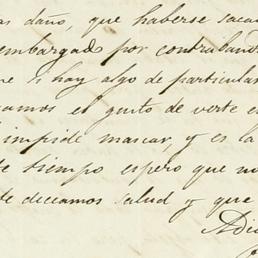 as daño, que haberse saca
embargado por contraband
e si hay algo de particular
amos el gusto de verte e
impide mascar, y es la
te tiempo espero que no
te deceamos salud y que
Adi